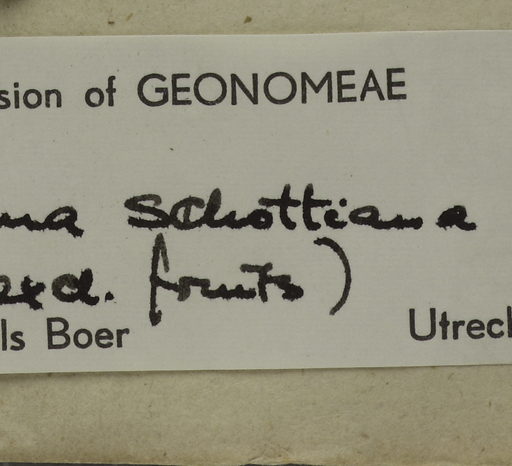 sion of GEONOMEAE
ma schottiana
excl. fruits)
ls Boer Utrech